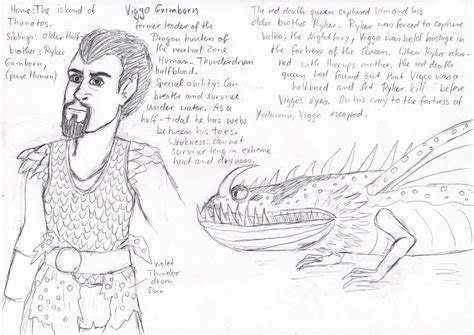 Home: The island of
Thunatos.
Siblings: older Half-
brother: Ryker
Grimborn,
(pure Human)
Viggo Grimborn
former leader of the
Dragon hunters of
the neutral zone
Human - Thunderdrum
halfblood.
Special ability: Can
breathe and survive
under water. As a
half-tidal he has webs
between his toes.
Weakness: cannot
survive long in extreme
heat and dryness.
The red death queen captured him and his
older brother Ryker. Ryker was forced to capture
Valka, the Nightfury, Viggo was held hostage in
the fortress of the Queen. When Ryker retur-
ned with Hiccups mother, the red death
queen had found out that Viggo was a
halfbreed and let Ryker kill before
Viggos eyes. On his way to the fortress of
Viggo escaped.
Violet
Thunder
drum
Skin